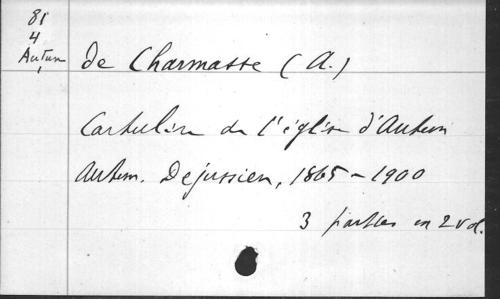 81
4
Autun
de Charmasse (A.)
Cartulaire de l'église d'Autun
Autun. Dejussieu, 1865-1900
3 parties en 2 vol.